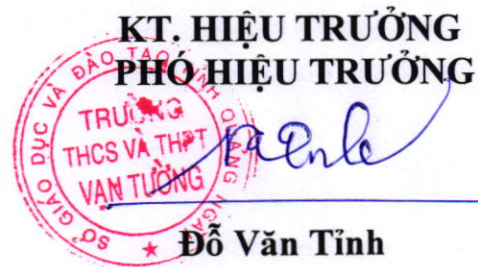 KT. HIỆU TRƯỞNG
PHÓ HIỆU TRƯỞNG
SỞ GIÁO DỤC VÀ ĐÀO TẠO TỈNH QUẢNG NGÃI
TRƯỜNG
THCS VÀ THPT
VẠN TƯỜNG
Đỗ Văn Tỉnh